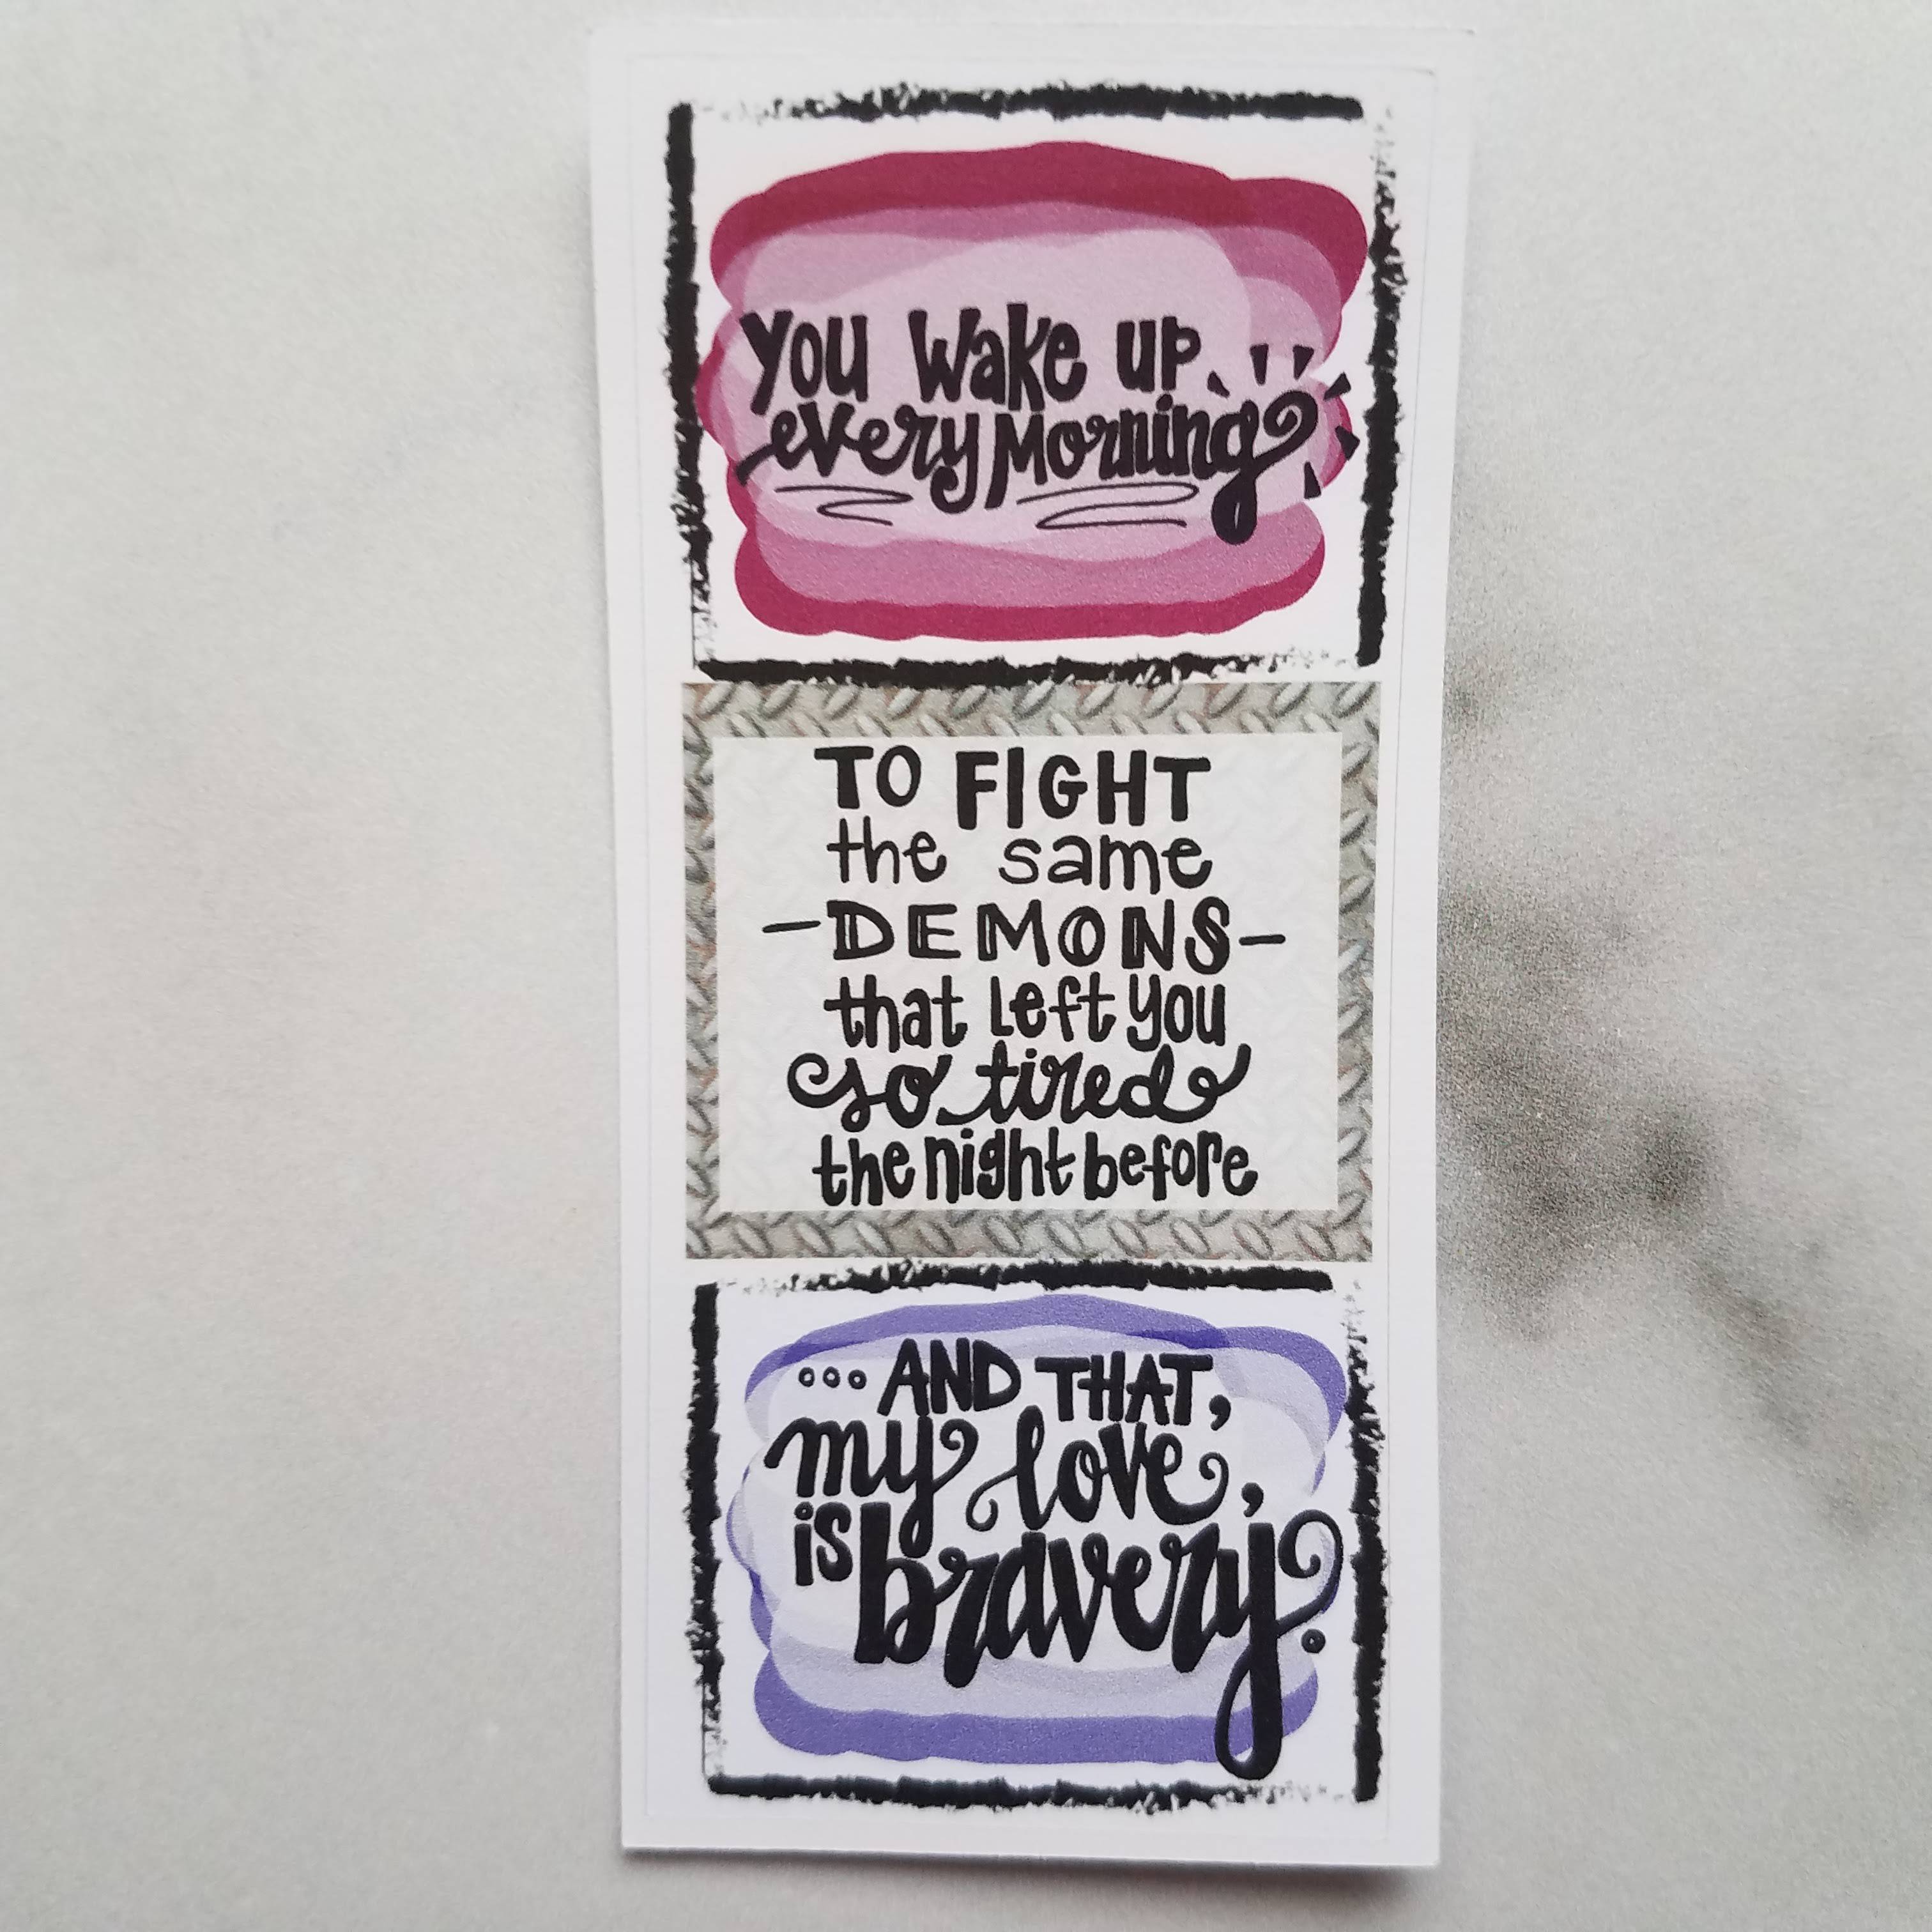 You Wake up
every Morning
TO FIGHT
the same
-DEMONS-
that left you
so tired
the night before
...AND THAT,
my love,
is bravery.